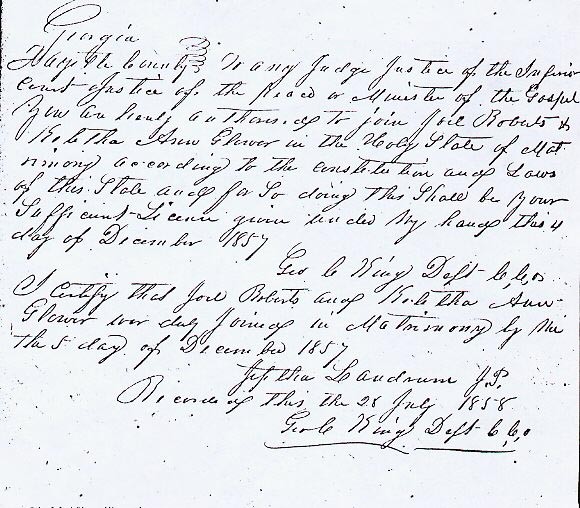 Georgia
Fayette County To any Judge Justice of the Inferior
court Justice of the peace or Minister of the Gospel
You are hereby authorised to join Joel Roberts &
Kiletha Ann Glower in the Holy State of Mat
rimony according to the constitution and Laws
of this State and for So doing this Shall be your
Sufficient Licence given under My hand this 4
day of December 1857
Geo C King Dept C,C,O
I certify that Joel Roberts and Kiletha Ann
Glower wer duly Joined in Matrimony by Me
the 5 day of December 1857
Jeptha Landrum J.P.
Recorded this the 28 July 1858
Geo C King Dept C,C,O